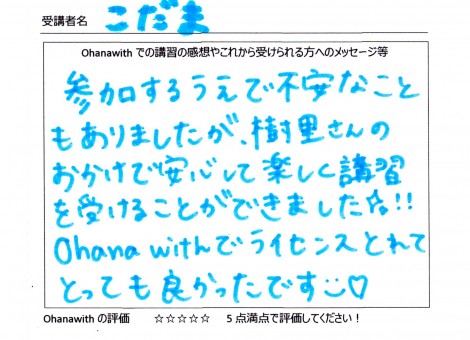 受講者名 こだま
Ohanawith での講習の感想やこれから受けられる方へのメッセージ等
参加するうえで不安なこと
もありましたが、樹里さんの
おかげで安心して楽しく講習
を受けることができました☆!!
Ohana withでライセンスとれて
とっても良かったです☺♡
Ohanawith の評価 ☆☆☆☆☆ 5 点満点で評価してください！